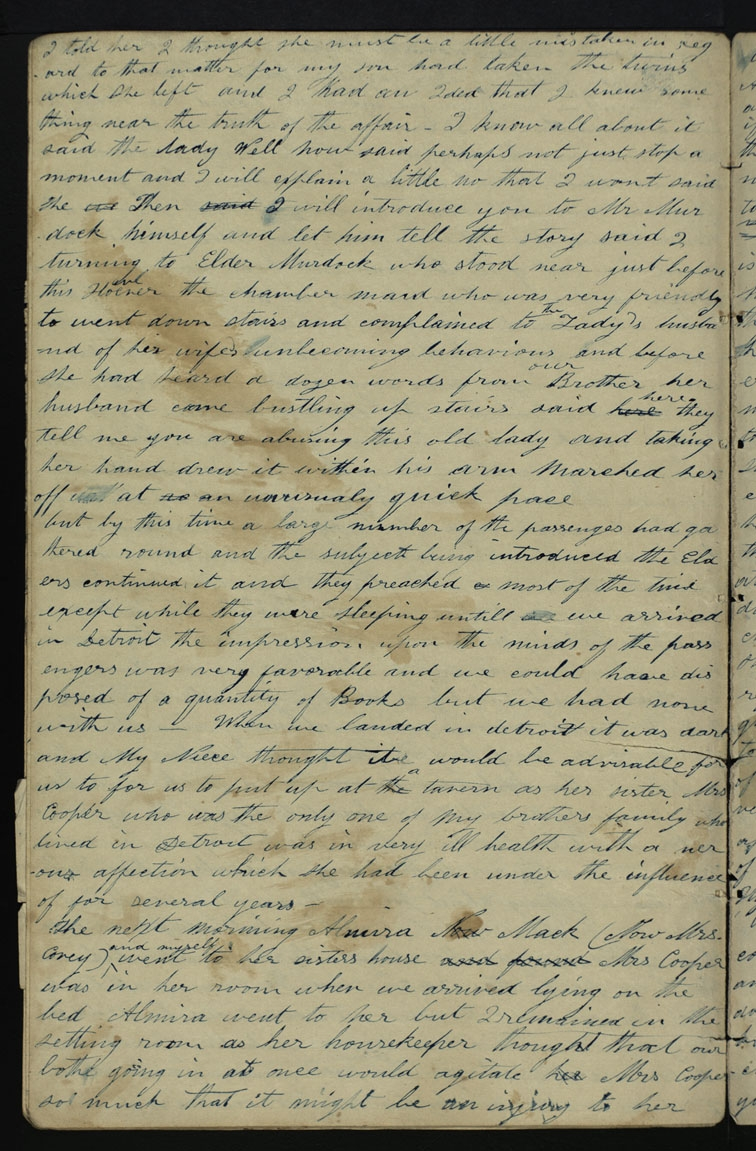 I told her I thought she must be a little mistaken in reg
-ard to that matter for my son had taken the twins
which she left and I had an Idea that I knew some
thing near the truth of the affair - I know all about it
said the lady Well now said perhaps not just stop a
moment and I will explain a little no that I wont said
she Then said I will introduce you to Mr Mur
-dock himself and let him tell the story said I
turning to Elder Murdock who stood near just before
this the chamber maid who was very friendly
to went down stairs and complained to the Lady's husba
-nd of his wifes unbecoming behaviour and before
she had heard a dozen words from our Brother her
husband came bustling up stairs said here here they
tell me you are abusing this old lady and taking
her hand drew it within his arm Marched her
off at an unusualy quick pace
but by this time a large number of the passengers had ga
thered round and the subject being introduced the Eld
ers continued it and they preached most of the time
except while they were sleeping untill we arrived
in Detroit the impression upon the minds of the pass
engers was very favorable and we could have dis
posed of a quantity of Books but we had none
with us — When we landed in detroit it was dark
and My Niece thought it would be advisable for
us to for us to put up at the a tavern as her sister Mrs
Cooper who was the only one of my brothers family who
lived in Detroit was in very ill health with a ner
-ous affection which she had been under the influence
of for several years —
the next morning Almira Now Mack (Now Mrs.
Covey) and myself went to her sisters house and found Mrs Cooper
was in her room when we arrived lying on the
bed Almira went to her but I remained in the
setting room as her housekeeper thought that our
both going in at once would agitate her Mrs Cooper
so much that it might be an injury to her